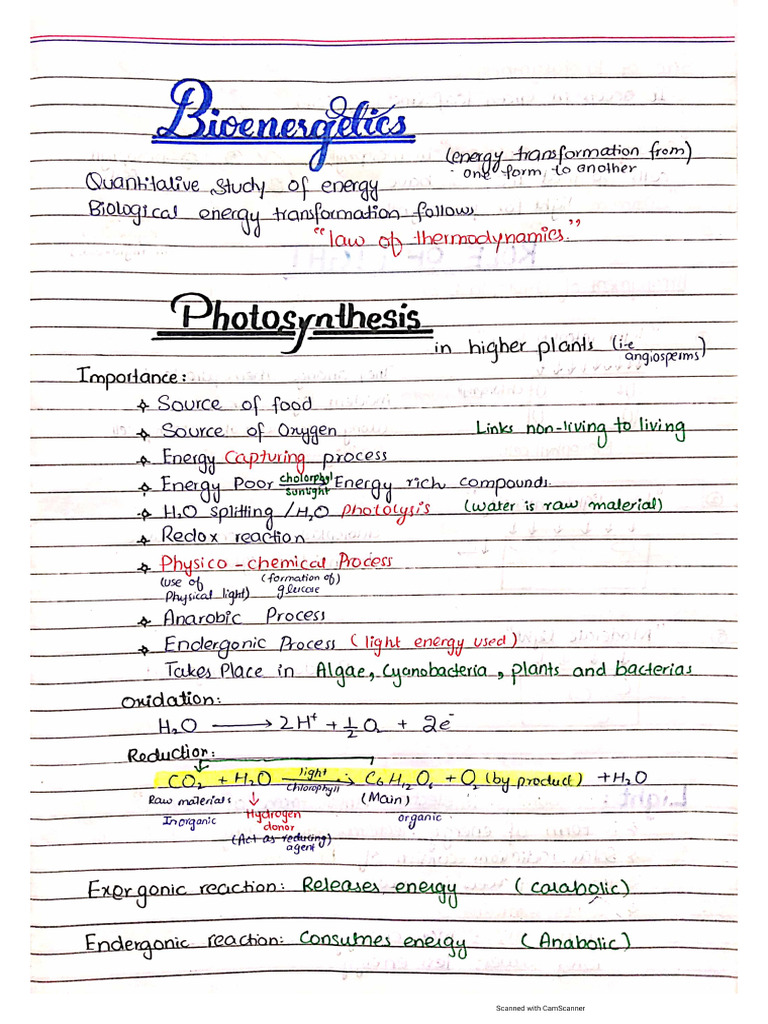 Bioenergetics
(energy transformation from)
one form, to another
Quantitative Study of energy
Biological energy transformation follows
"law of thermodynamics."
Photosynthesis
in higher plants (i.e angiosperms)
Importance:
Source of food
Source of Oxygen Links non-living to living
Energy Capturing process
Energy Poor cholorphyl sunlight Energy rich compounds.
H₂O splitting / H₂O Photolysis (water is raw material)
Redox reaction
Physico-chemical Process
(use of Physical light) (formation of) glucose
Anarobic Process
Endergonic Process (light energy used)
Takes Place in Algae, Cyanobacteria, plants and bacterias
Oxidation:
H₂O → 2H⁺ + 1/2 O₂ + 2e⁻
Reduction:
CO₂ + H₂O light → chlorophyll C₆H₁₂O₆ + O₂ (by product) + H₂O
Raw materials (Main)
Inorganic Hydrogen donor organic
(Act as reducing agent)
Exergonic reaction: Releases energy (catabolic)
Endergonic reaction: Consumes energy (Anabolic)
Scanned with CamScanner